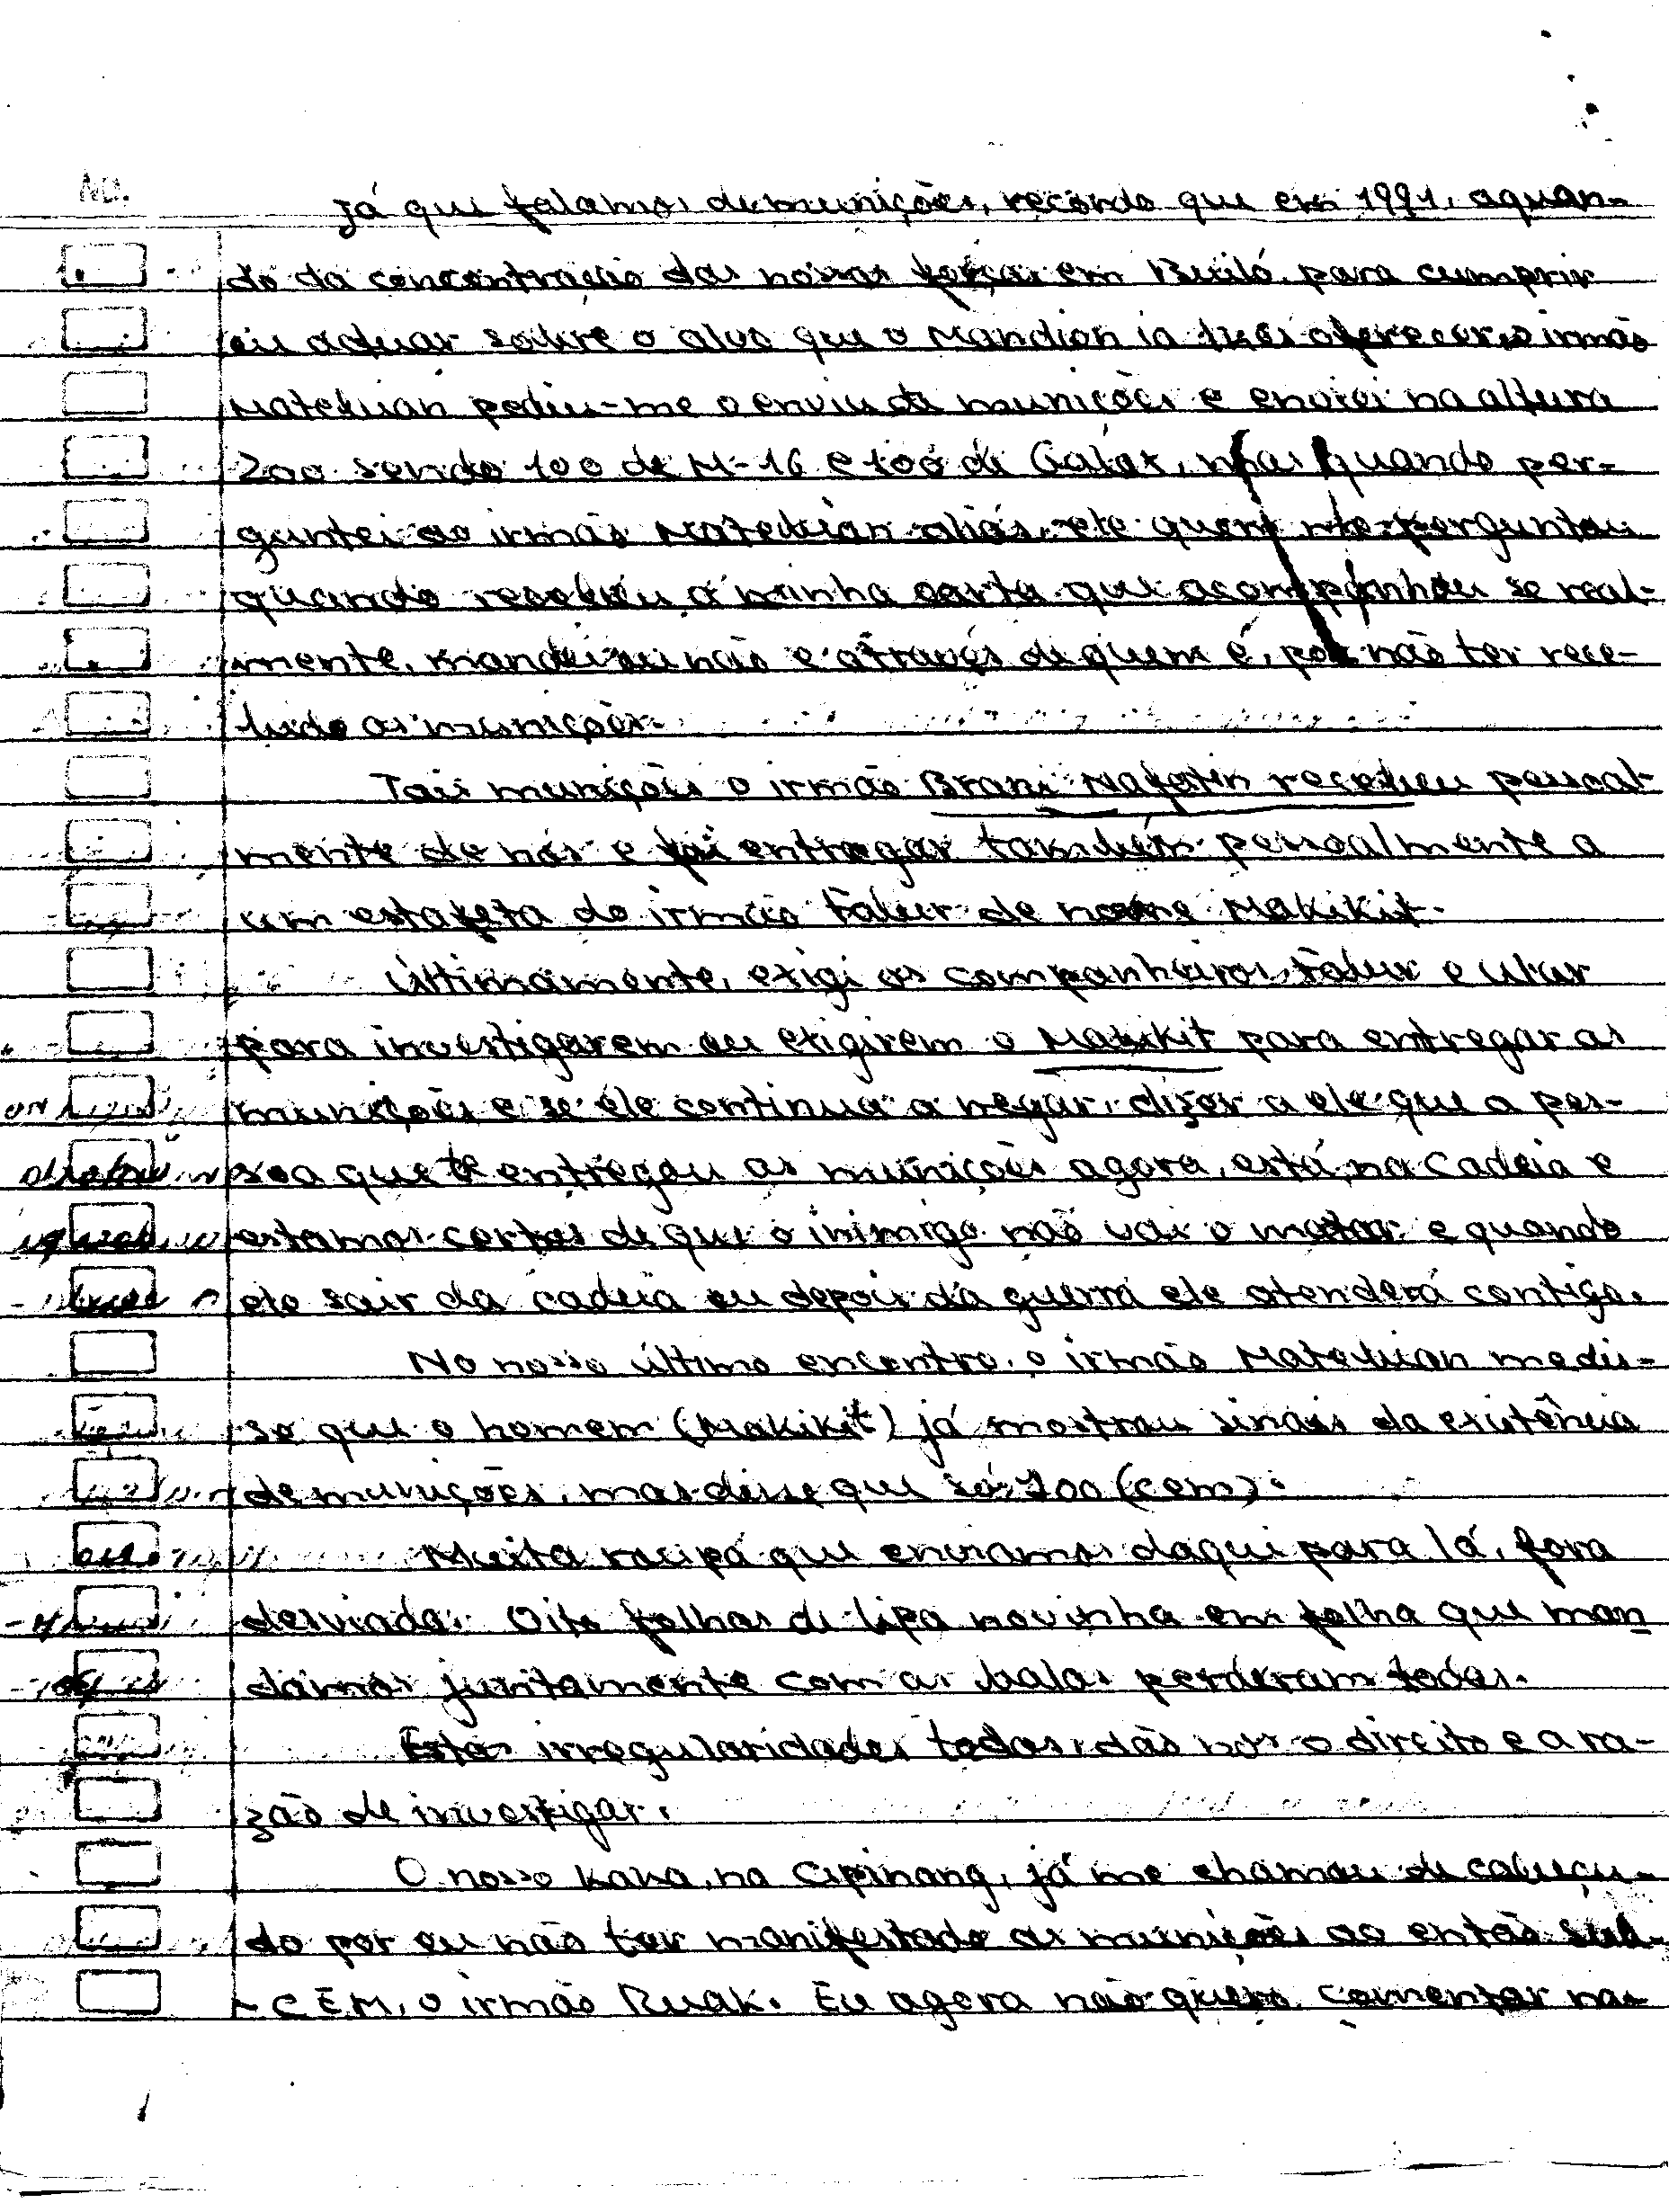 No.
Já que falamos de munições, recordo que em 1991, aquan-
do da concentração das nossas forças em Builó, para cumprir
ou actuar sobre o alvo que o Mandion ia oferecer, o irmão
Matekuan pediu-me o envio de munições e enviei na altura
200 sendo 100 de M-16 e 100 de Galax, mas quando per-
guntei ao irmão Matekuan aliás, ele quem me perguntou
quando recebeu a minha carta que acompanhou se real-
mente, mandei ou não e através de quem é, por não ter rece-
bido as munições.
Tais munições o irmão Brani Nafatin recebeu pessoal-
mente de nós e foi entregar também pessoalmente a
um estafeta do irmão Falur de nome Makikit.
Ultimamente, exigi os companheiros Falur e Ular
para investigarem ou exigirem o Makikit para entregar as
munições e se ele continua a negar, dizer a ele que a pes-
soa que te entregou as munições agora, está na cadeia e
estamos certos de que o inimigo não vai o matar e quando
ele sair da cadeia ou depois da guerra ele atenderá contigo.
No nosso último encontro, o irmão Matekuan me dis-
se que o homem (Makikit) já mostrou sinais da existência
de munições, mas disse que só 100 (cem).
Muita roupa que enviamos daqui para lá, fora
desviada. Oito folhas de lipa novinha em folha que man
damos juntamente com as balas perderam todas.
Estas irregularidades todas, dão nos o direito e a ra-
zão de investigar.
O nosso Kaka, na Cipinang, já me chamou de cabeçu-
do por eu não ter manifestado as munições ao então Sub-
- CEM, o irmão Ruak. Eu agora não quero comentar nas